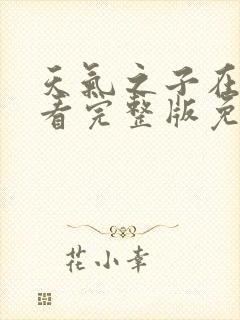 天氣之子在
看完整版免
花小幸